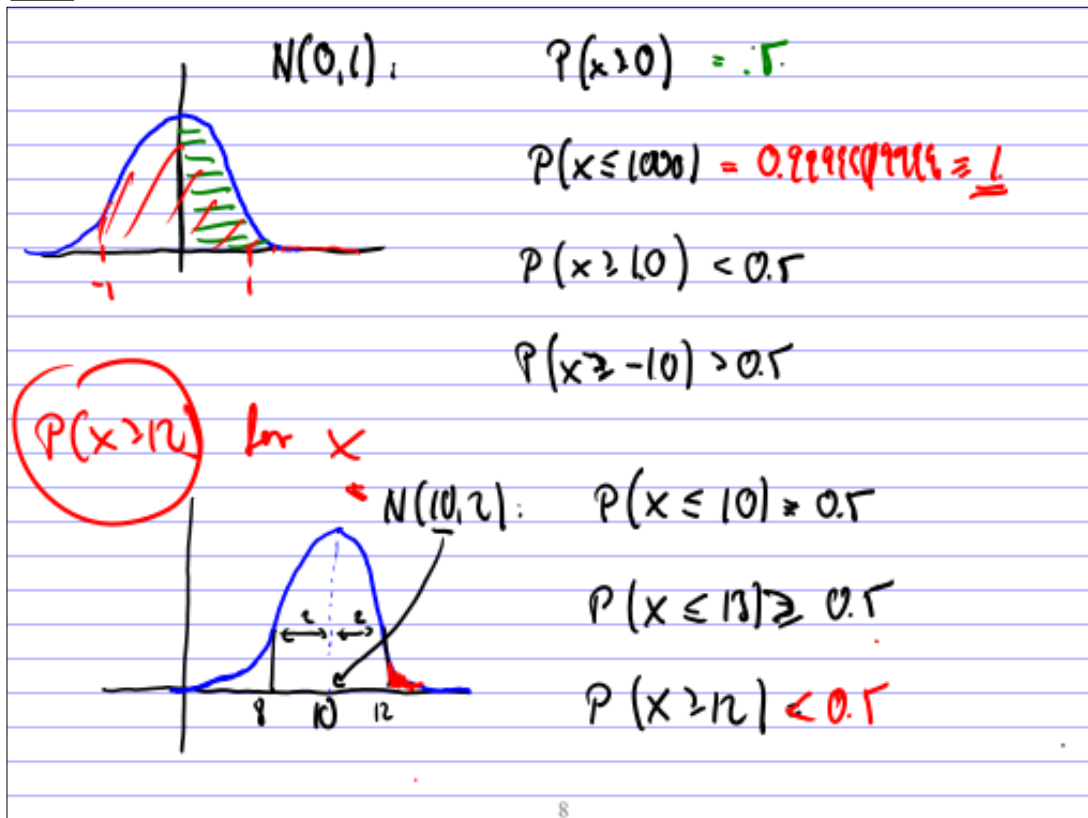 N(0,1):
P(x≥0) = .5
P(x≤1000) = 0.999999999 = 1.
-1 1
P(x≥10) < 0.5
P(x≥-10) > 0.5
P(X≥12) for X
N(10,2):
P(X≤10) = 0.5
P(X≤13) ≥ 0.5
P(X≥12) < 0.5
2 2
8 10 12
8